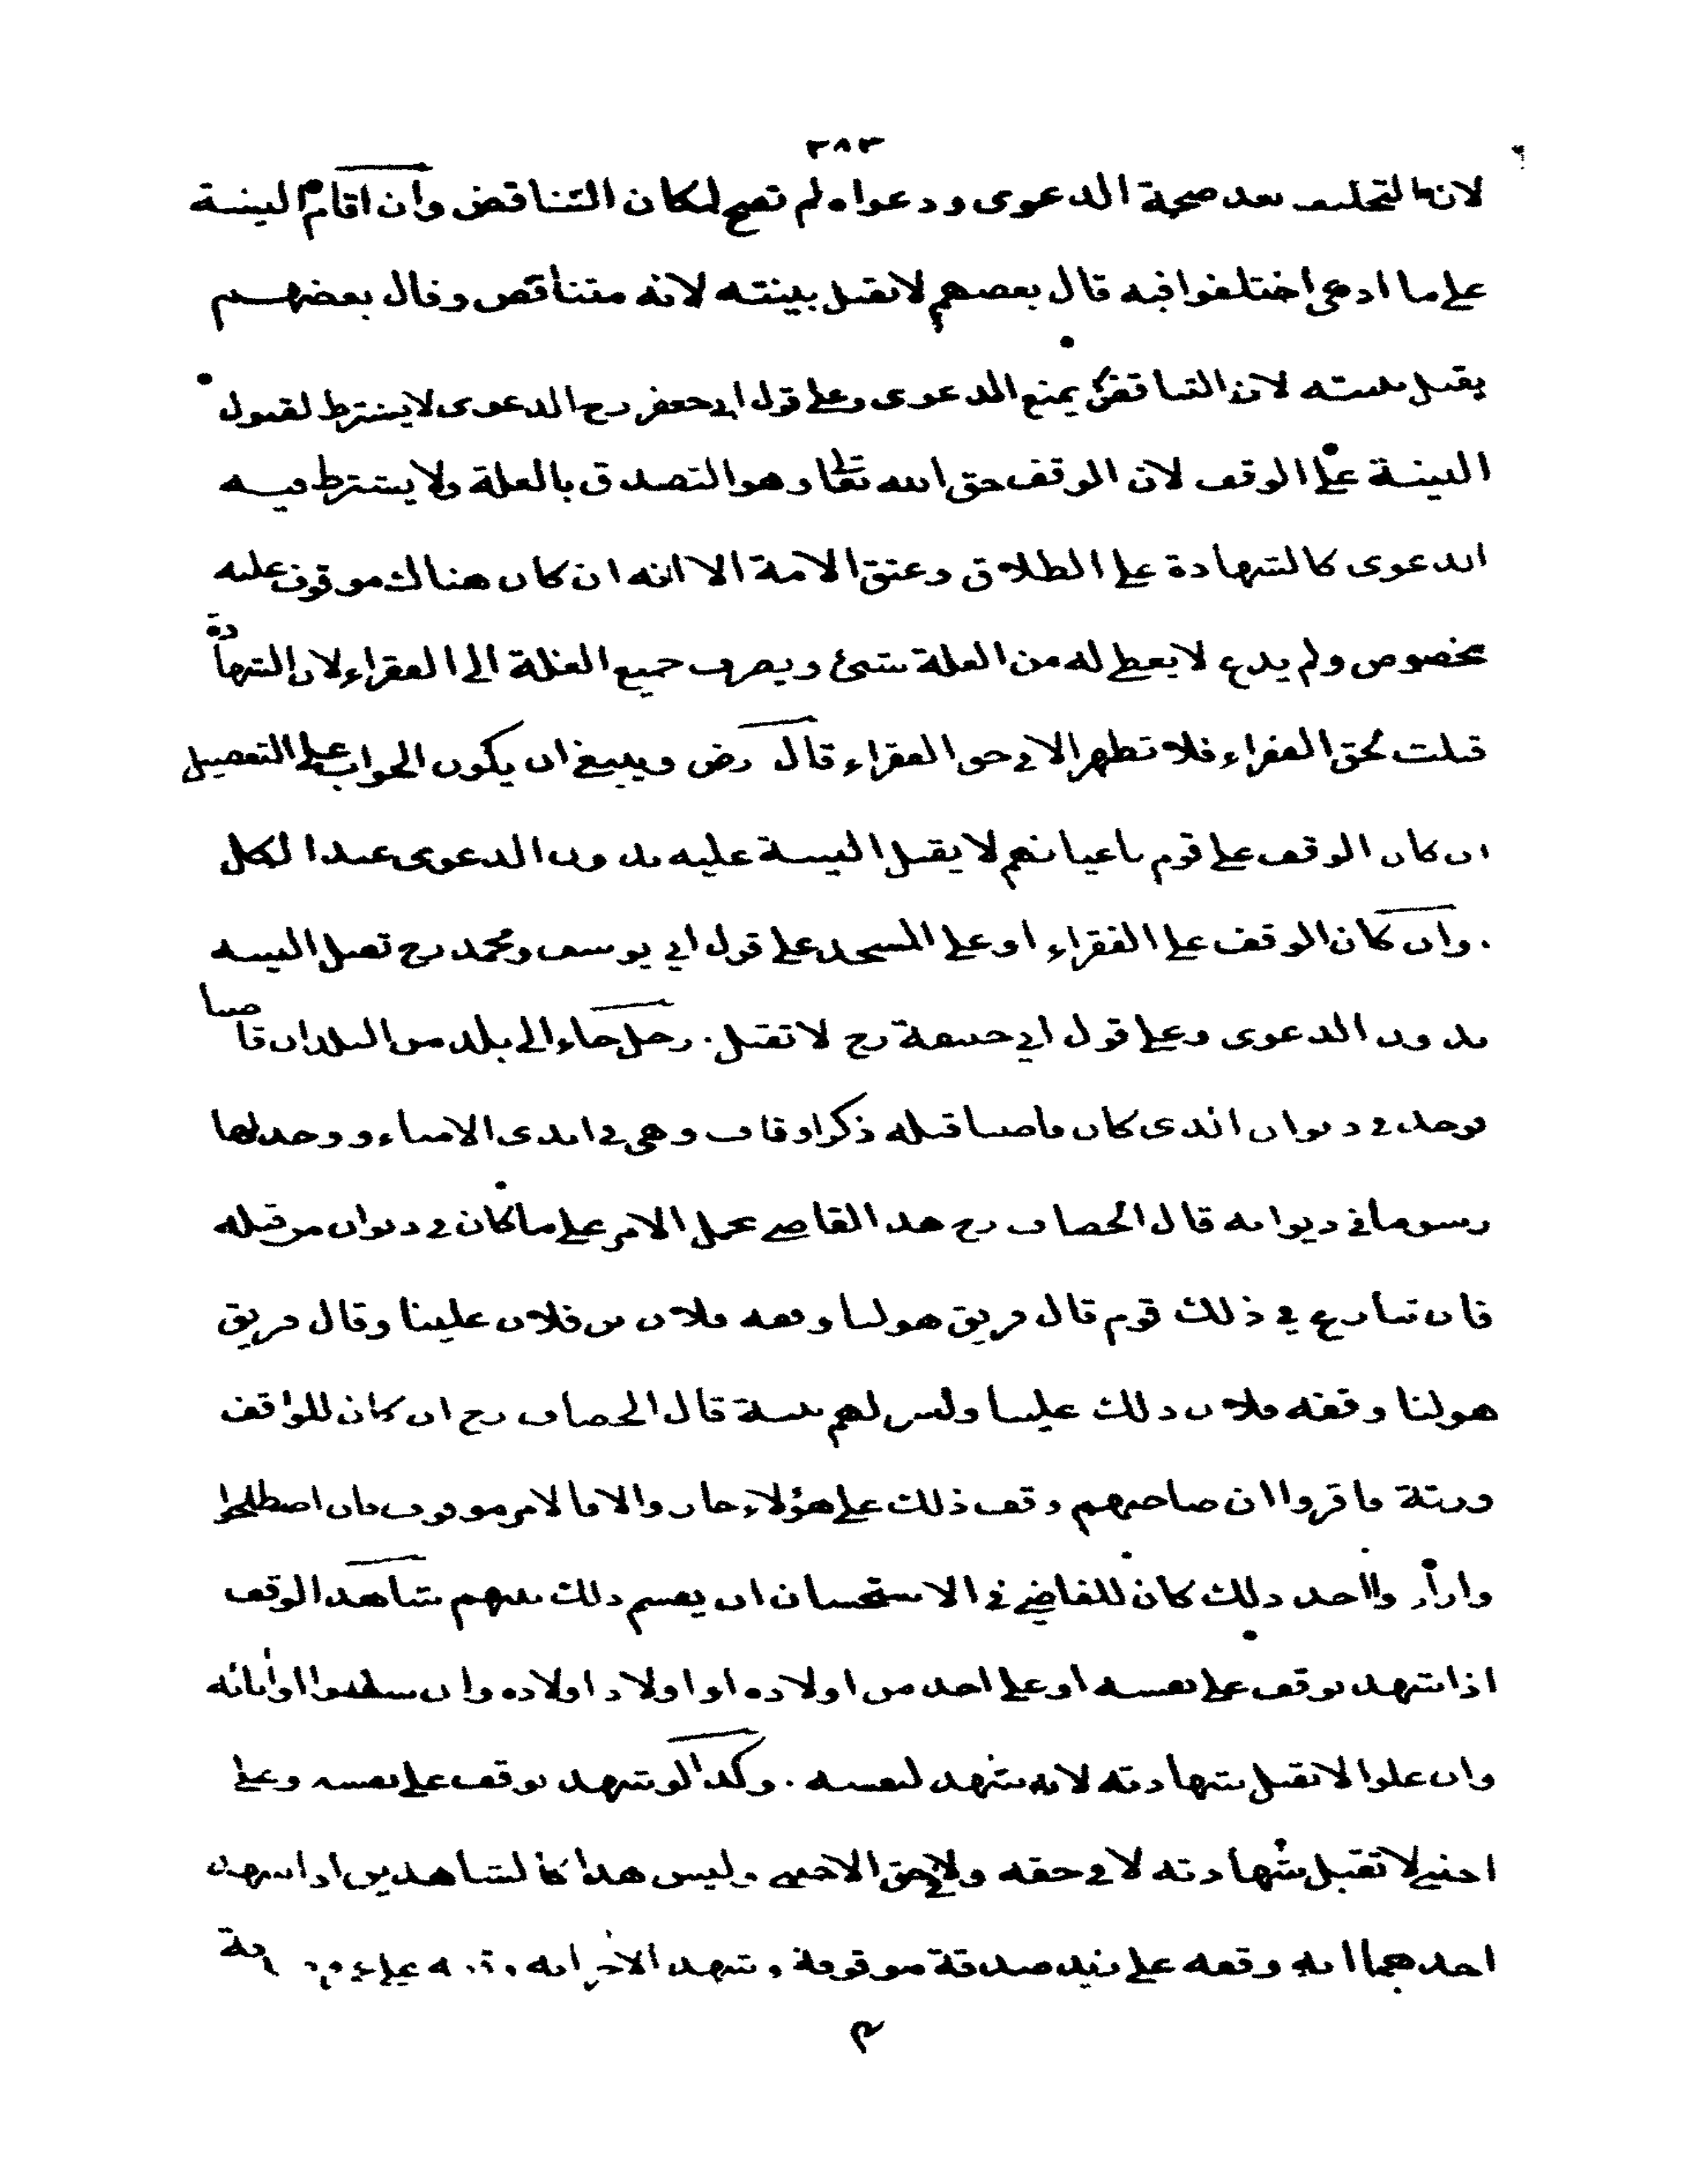 ٣٨٣
لان التحليف بعد صحة الدعوى ودعواه لم تصح لمكان التناقض وان اقام البينة
على ما ادعى اختلفوا فيه قال بعضهم لا تقبل بينته لانه متناقض وقال بعضهم
يقبل بينته لان التناقض يمنع الدعوى وعلى قول ابي جعفر رح الدعوى لا يشترط لقبول
البينة على الوقف لان الوقف حق الله تعالى وهو التصدق بالغلة ولا يشترط فيه
الدعوى كالشهادة على الطلاق وعتق الامة الا انه ان كان هناك موقوف عليه
مخصوص ولم يدع لا يعطى له من الغلة شئ ويصرف جميع الغلة الى الفقراء لان الشهادة
قبلت لحق الفقراء فلا تظهر الا في حق الفقراء قال رض وينبغي ان يكون الجواب على التفصيل
ان كان الوقف على قوم باعيانهم لا يقبل البينة عليه بدون الدعوى عند الكل
وان كان الوقف على الفقراء او على المسجد على قول ابي يوسف ومحمد رح تقبل البينة
بدون الدعوى وعلى قول ابي حنيفة رح لا تقبل. رجل جاء الى بلد من البلدان قاضيا
فوجد في ديوان الذي كان قاضيا قبله ذكر اوقاف وهي في ايدى الامناء ووجد لها
رسوما في ديوانه قال الخصاف رح هذا القاضي يحمل الامر على ما كان في ديوان من قبله
فان تنازع في ذلك قوم قال فريق هو لنا وقفه فلان بن فلان علينا وقال فريق
هو لنا وقفه فلان ذلك علينا وليس لهم بينة قال الخصاف رح ان كان للواقف
ورثة فاقروا ان صاحبهم وقف ذلك على هؤلاء جاز والا فالامر موقوف فان اصطلحوا
وارادوا اخذ ذلك كان للقاضي في الاستحسان ان يقسم ذلك بينهم شاهد الوقف
اذا شهد بوقف على نفسه او على احد من اولاده او اولاد اولاده وان سفلوا او آبائه
وان علوا لا تقبل شهادته لانه شهد لنفسه. وكذا لو شهد بوقف على نفسه وعلى
اجنبي لا تقبل شهادته لا في حقه ولا في حق الاجنبي وليس هذا كالشاهدين اذا شهد
احدهما انه وقفه على زيد صدقة موقوفة وشهد الآخر انه وقفه على